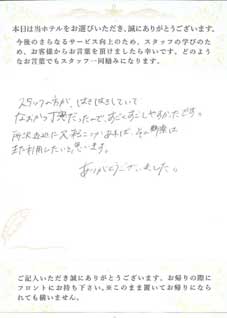 本日は当ホテルをお選びいただき、誠にありがとうございます。
今後のさらなるサービス向上のため、スタッフの学びのため、お客様からお言葉を頂けましたら幸いです。どのようなお言葉でもスタッフ一同励みになります。
スタッフの方が、はきはきしていて
なおかつ丁寧だったので、すごくすごしやすかったです。
所沢
また利用したいと思います。
ありがとうございました。
ご記入いただき誠にありがとうございます。お帰りの際に
フロントにお持ち下さい。※このまま置いてお帰りになら
れても構いません。